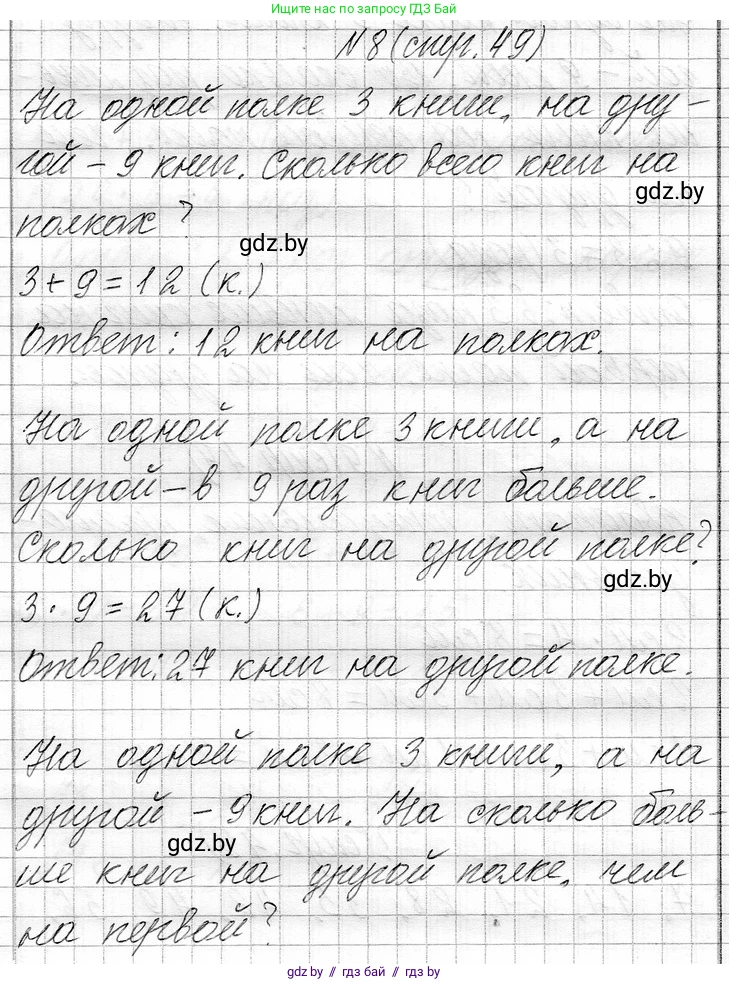 Ищите нас в поиске по запросу ГДЗ Бай
№8 (стр. 49)
На одной полке 3 книги, на дру-
гой – 9 книг. Сколько всего книг на
gdz.by
полках?
gdz.by
3 + 9 = 12 (к.)
Ответ: 12 книг на полках.
На одной полке 3 книги, а на
другой – в 9 раз книг больше.
Сколько книг на другой полке?
gdz.by
3 · 9 = 27 (к.)
Ответ: 27 книг на другой полке.
На одной полке 3 книги, а на
другой – 9 книг. На сколько боль-
gdz.by
ше книг на другой полке, чем
на первой?
gdz.by // гдз бай // gdz.by